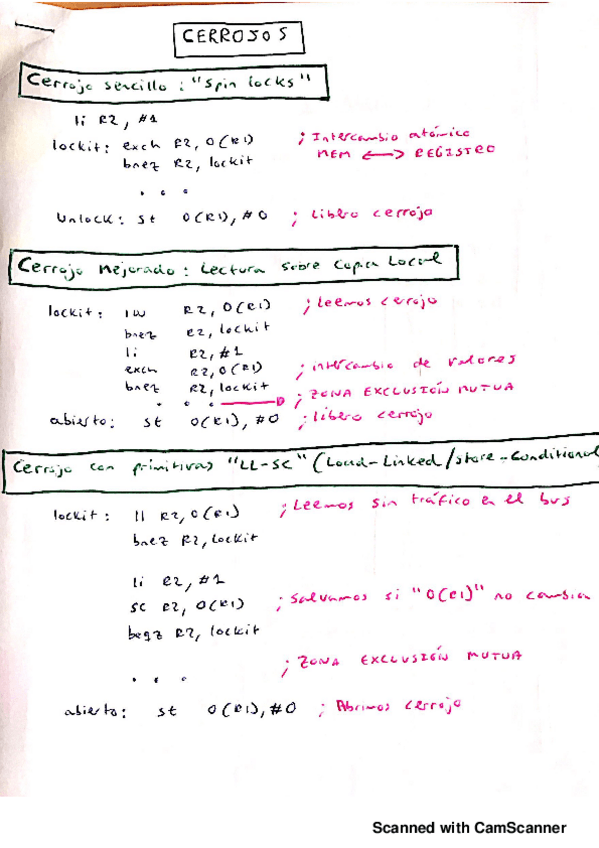 CERROJOS
Cerrojo sencillo : "Spin locks"
li R2, #1
lockit: exch R2, 0(R1) ; Intercambio atómico
bnez R2, lockit MEM <--> REGISTRO
. . .
Unlock: st 0(R1), #0 ; libero cerrojo
Cerrojo Mejorado: Lectura sobre Copia Local
lockit: lw R2, 0(R1) ; Leemos cerrojo
bnez R2, lockit
li R2, #1
exch R2, 0(R1) ; intercambio de valores
bnez R2, lockit
. . . ; ZONA EXCLUSIÓN MUTUA
abierto: st 0(R1), #0 ; libero cerrojo
Cerrojo con primitivas "LL-SC" (Load-Linked/store-Conditional
lockit: ll R2, 0(R1) ; Leemos sin tráfico en el bus
bnez R2, lockit
li R2, #1
sc R2, 0(R1) ; Salvamos si "0(R1)" no cambia
beqz R2, lockit
; ZONA EXCLUSIÓN MUTUA
. . .
abierto: st 0(R1), #0 ; Abrimos cerrojo
Scanned with CamScanner